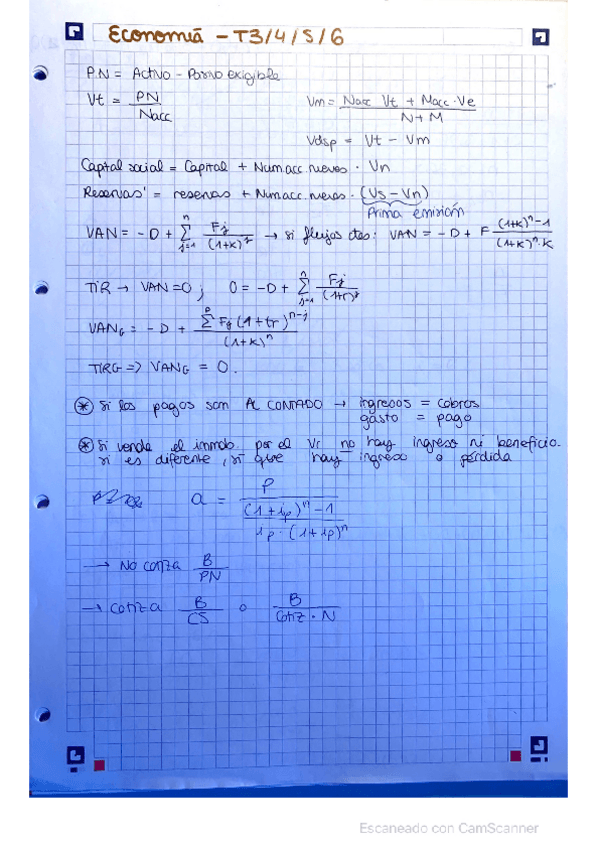 Economía - T3/4/5/6
P.N = Activo - Pasivo exigible
Vt = PN / Nacc
Vm = Nacc Vt + Macc · Ve / N + M
Vdsp = Vt - Vm
Capital social = Capital + Num acc. nuevas · Vn
Reservas' = reservas + Num acc. nuevas · (Vs - Vn)
Prima emisión
VAN = - D + Σ j=1 n Fj / (1+k)^j → si flujos ctes: VAN = - D + F (1+k)^n - 1 / (1+k)^n · k
TIR → VAN = 0 ; 0 = - D + Σ j=1 n Fj / (1+r)^j
VANG = - D + Σ Fj (1 + tr)^n-j / (1+k)^n
TIRG => VANG = 0.
* Si los pagos son AL CONTADO → ingresos = cobros
gasto = pago
* Si vende el inmob por el Vr no hay ingreso ni beneficio.
si es diferente, sí que hay ingreso o pérdida
a = P / (1 + ip)^n - 1 / ip · (1 + ip)^n
→ No cotiza B / PN
→ cotiza B / CS o B / Cotiz · N
Escaneado con CamScanner